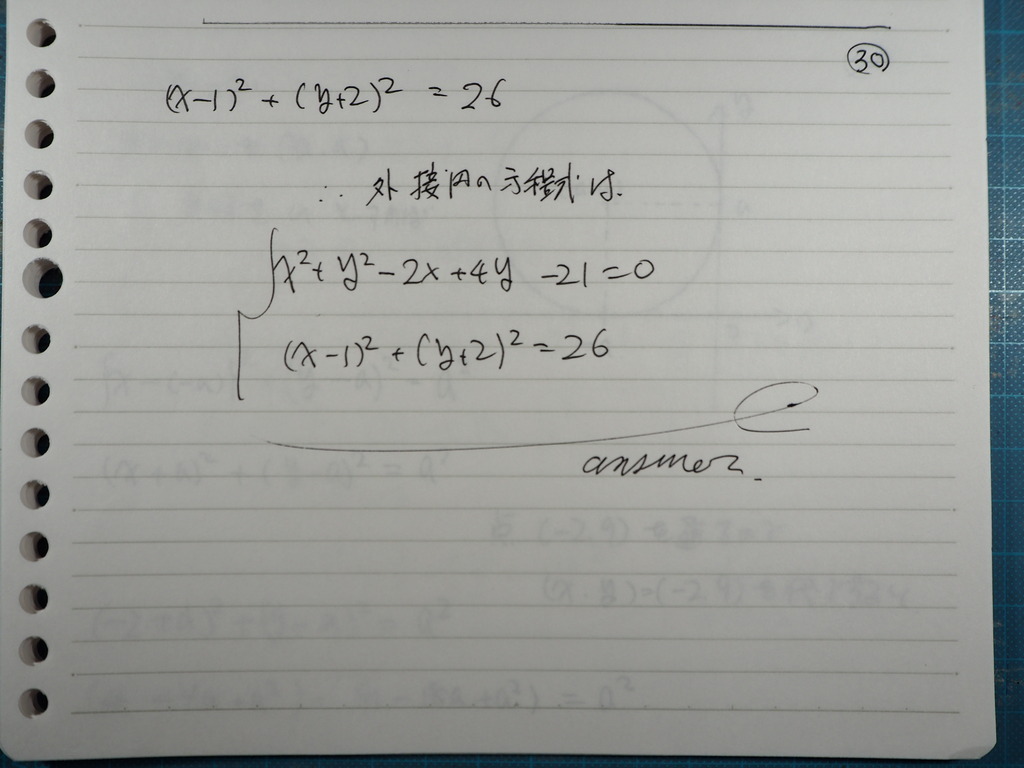 ㉚
(x-1)² + (y+2)² = 26
∴ 外接円の方程式は.
x² + y² - 2x + 4y - 21 = 0
(x-1)² + (y+2)² = 26
answer.